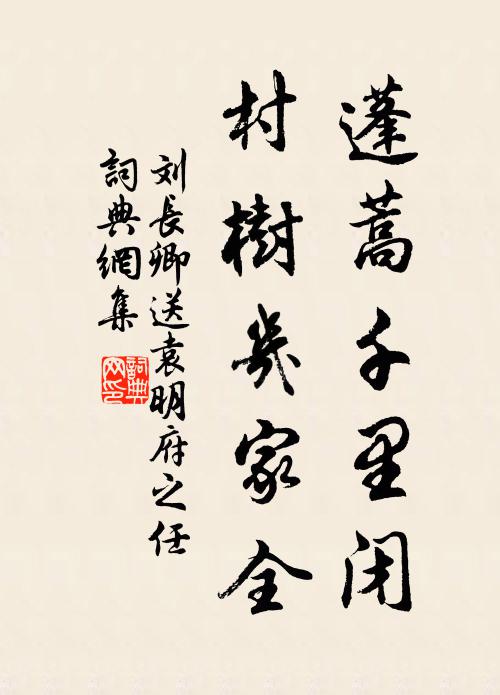 蓬蒿千里闭
村樹幾家全
刘長卿送袁明府之任
詞典網集
詞典網印